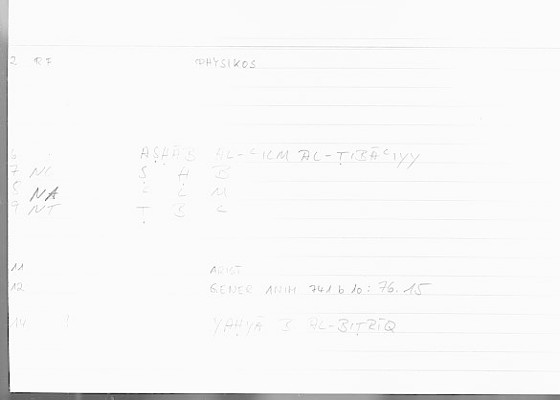 2 RF PHYSIKOS
6 AṢḤĀB AL-ʿILM AL-ṬIBĀʿIYY
7 NI Ṣ Ḥ B
8 NA ʿ L M
9 NT Ṭ B ʿ
11 ARIST
12 GENER ANIM 741 b 10 : 76.15
14 YAḤYĀ B AL-BIṬRĪQ